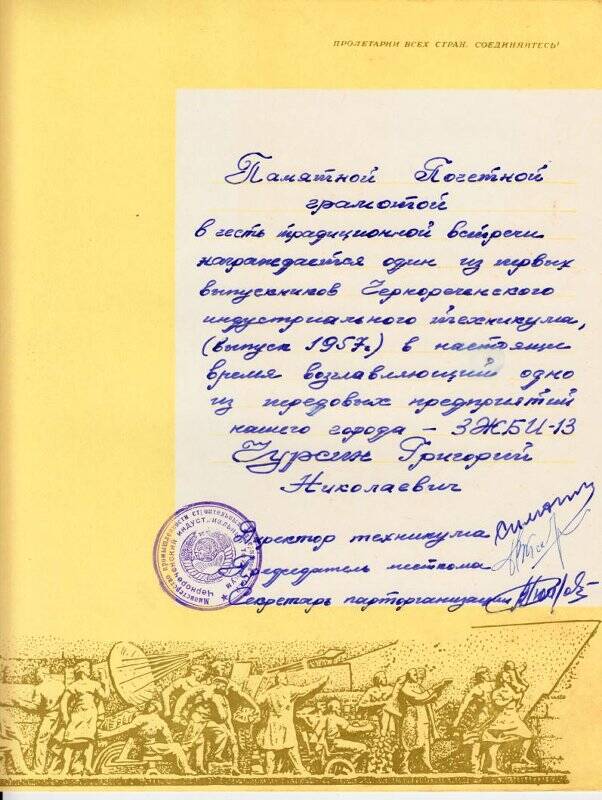 ПРОЛЕТАРИИ ВСЕХ СТРАН, СОЕДИНЯЙТЕСЬ!
Памятной Почетной
грамотой
в честь традиционной встречи
награждается один из первых
выпускников Чернореченского
индустриального техникума,
(выпуск 1957г.) в настоящи
время возглавляющий одно
из передовых предприятий
нашего города – ЗЖБИ-13
Чурсин Григорий
Николаевич
Директор техникума
Председатель месткома
Секретарь парторганизации
Министерство промышленности строительных
Чернореченский индустриальный